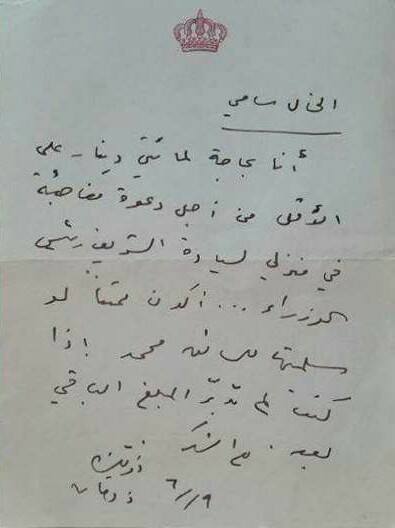 الخال سامي
أنا بحاجة لمائتي دينار على
الأقل من أجل دعوة مفاجئة
في منزلي لسيادة الشريف رئيس
الوزراء ... أكون ممتناً لو
سلمتها للسائق محمد إذا
كنت لم تدبّر المبلغ الباقي
بعد. مع الشكر
٦/١٩